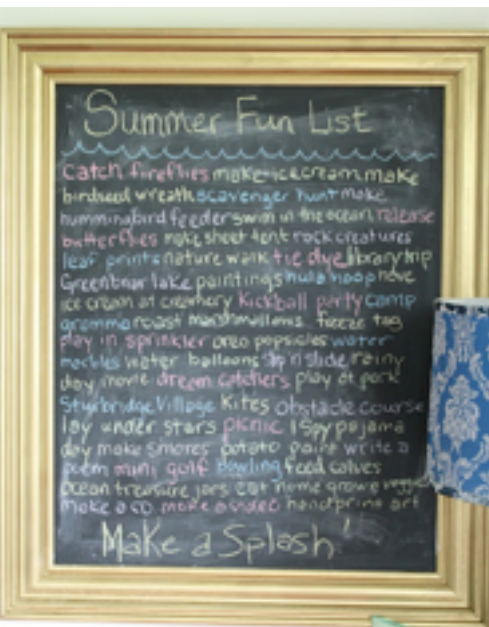 Summer Fun List
catch fireflies make ice cream make
birdseed wreath scavenger hunt make
hummingbird feeder swim in the ocean release
butterflies make sheet tent rock creatures
leaf prints nature walk tie dye library trip
lake paintings hula hoop have
ice cream at creamery kickball party camp
roast marshmallows freeze tag
play in sprinkler oreo popsicles water
marbles water balloons slip n slide rainy
day movie dream catchers play at park
Sturbridge Village kites obstacle course
lay under stars picnic I Spy pajama
day make smores potato paint write a
poem mini golf bowling feed calves
ocean treasure jars eat home grown
make a make a video handprint art
Make a Splash!